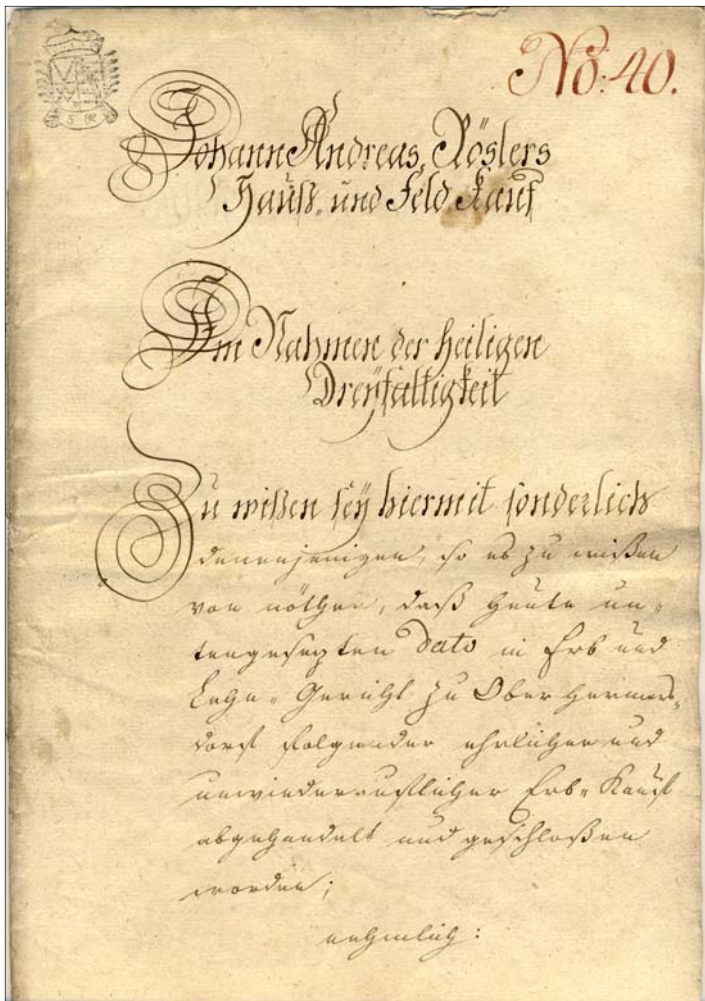 No: 40.
Johann Andreas Röslers
Hauß und Feld Kauf
Im Nahmen der heiligen
Dreyfaltigkeit
Zu wißen sey hiermit sonderlich
denenjenigen, so es zu wißen
von nöthen, daß heute un„
tengesezten dato in Erb und
Lehn„ Gericht zu Ober Hermers„
dorf folgender ehrlicher und
unwiederruflicher Erb„ Kauf
abgehandelt und geschloßen
worden;
nehmlich: